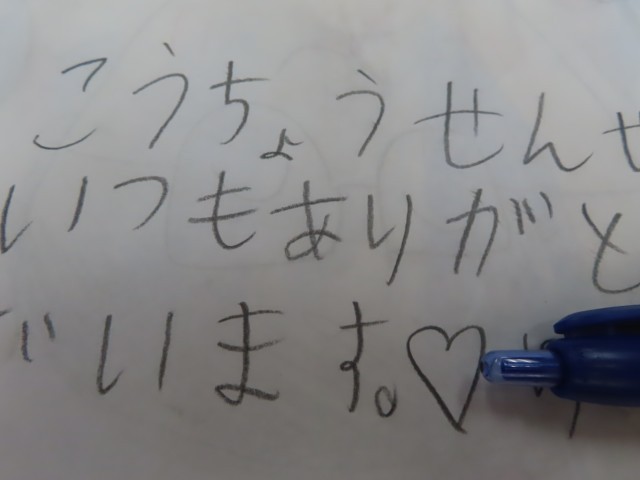 こうちょうせんせ
いつもありがと
ざいます。♡